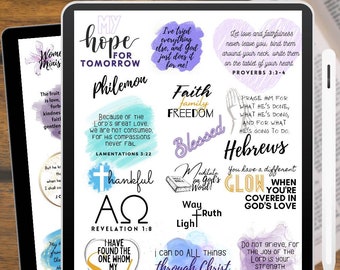 MY
hope
FOR
TOMORROW
I've tried
everything
else, and God
just does it
for me!
Let love and faithfulness
never leave you, bind them
around your neck, write them
on the tablet of your heart.
PROVERBS 3:3-4
Philemon
Faith
family
FREEDOM
PRAISE HIM FOR
WHAT HE'S DONE,
AND FOR WHAT
HE'S GOING TO DO.
Because of the
Lord's great love,
we are not consumed,
for His compassions
never fail.
LAMENTATIONS 3:22
Blessed
Hebrews
thankful
Meditate
on God's
Word!
You have a different
GLOW WHEN
YOU'RE
COVERED IN
GOD'S LOVE
ΑΩ
REVELATION 1:8
Way
Truth
Light
I HAVE
FOUND THE
ONE WHOM
MY
I can do ALL things
through Christ
Do not grieve, for
the joy of the
Lord is your
strength
Women's
The fruit